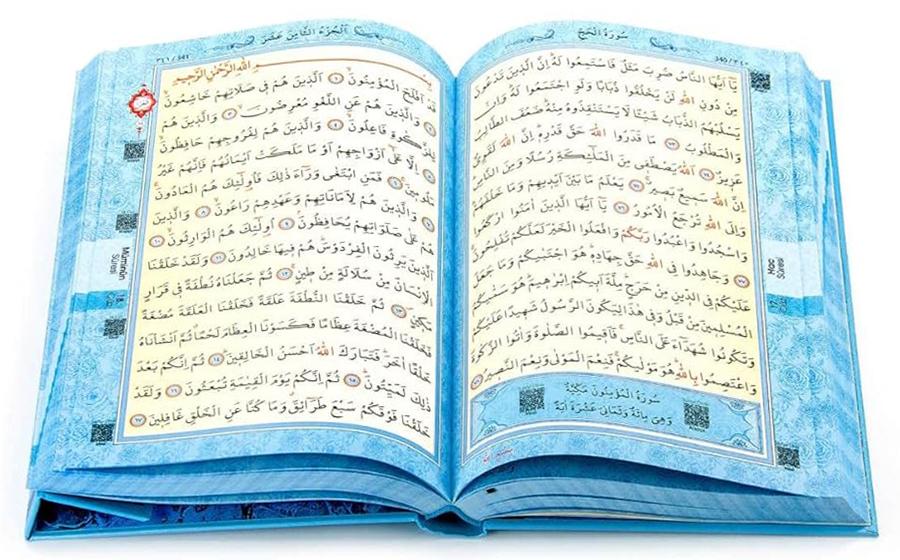 سُورَةُ الْحَجِّ
340 / ٣٤٠
يَٓا اَيُّهَا النَّاسُ ضُرِبَ مَثَلٌ فَاسْتَمِعُوا لَهُ اِنَّ الَّذِينَ تَدْعُونَ
مِنْ دُونِ اللّٰهِ لَنْ يَخْلُقُوا ذُبَابًا وَلَوِ اجْتَمَعُوا لَهُ وَاِنْ
يَسْلُبْهُمُ الذُّبَابُ شَيْئًا لَا يَسْتَنْقِذُوهُ مِنْهُ ضَعُفَ الطَّالِبُ
وَالْمَطْلُوبُ ٧٣ مَا قَدَرُوا اللّٰهَ حَقَّ قَدْرِهِ اِنَّ اللّٰهَ لَقَوِيٌّ
عَزِيزٌ ٧٤ اَللّٰهُ يَصْطَفِي مِنَ الْمَلٰٓئِكَةِ رُسُلًا وَمِنَ النَّاسِ
اِنَّ اللّٰهَ سَمِيعٌ بَصِيرٌ ٧٥ يَعْلَمُ مَا بَيْنَ اَيْدِيهِمْ وَمَا خَلْفَهُمْ
وَاِلَى اللّٰهِ تُرْجَعُ الْاُمُورُ ٧٦ يَٓا اَيُّهَا الَّذِينَ اٰمَنُوا ارْكَعُوا
وَاسْجُدُوا وَاعْبُدُوا رَبَّكُمْ وَافْعَلُوا الْخَيْرَ لَعَلَّكُمْ تُفْلِحُونَ
٧٧ وَجَاهِدُوا فِي اللّٰهِ حَقَّ جِهَادِهِ هُوَ اجْتَبٰيكُمْ وَمَا جَعَلَ
عَلَيْكُمْ فِي الدِّينِ مِنْ حَرَجٍ مِلَّةَ اَبِيكُمْ اِبْرٰهِيمَ هُوَ سَمّٰيكُمُ
الْمُسْلِمِينَ مِنْ قَبْلُ وَفِي هٰذَا لِيَكُونَ الرَّسُولُ شَهِيدًا عَلَيْكُمْ
وَتَكُونُوا شُهَدَٓاءَ عَلَى النَّاسِ فَاَقِيمُوا الصَّلٰوةَ وَاٰتُوا الزَّكٰوةَ
وَاعْتَصِمُوا بِاللّٰهِ هُوَ مَوْلٰيكُمْ فَنِعْمَ الْمَوْلٰى وَنِعْمَ النَّصِيرُ ٧٨
سُورَةُ الْمُؤْمِنُونَ مَكِّيَّةٌ
وَهِيَ مِائَةٌ وَثَمَانِيَ عَشْرَةَ اٰيَةً
Hac
Sûresi
اَلْجُزْءُ الثَّامِنَ عَشَرَ
٣٤١ / 341
بِسْمِ اللّٰهِ الرَّحْمٰنِ الرَّحِيمِ
قَدْ اَفْلَحَ الْمُؤْمِنُونَ ١ اَلَّذِينَ هُمْ فِي صَلَاتِهِمْ خَاشِعُونَ
٢ وَالَّذِينَ هُمْ عَنِ اللَّغْوِ مُعْرِضُونَ ٣ وَالَّذِينَ هُمْ
لِلزَّكٰوةِ فَاعِلُونَ ٤ وَالَّذِينَ هُمْ لِفُرُوجِهِمْ حَافِظُونَ
٥ اِلَّا عَلٰٓى اَزْوَاجِهِمْ اَوْ مَا مَلَكَتْ اَيْمَانُهُمْ فَاِنَّهُمْ غَيْرُ
مَلُومِينَ ٦ فَمَنِ ابْتَغٰى وَرَٓاءَ ذٰلِكَ فَاُولٰٓئِكَ هُمُ الْعَادُونَ
٧ وَالَّذِينَ هُمْ لِاَمَانَاتِهِمْ وَعَهْدِهِمْ رَاعُونَ ٨ وَالَّذِينَ
هُمْ عَلٰى صَلَوَاتِهِمْ يُحَافِظُونَ ٩ اُولٰٓئِكَ هُمُ الْوَارِثُونَ ١٠
اَلَّذِينَ يَرِثُونَ الْفِرْدَوْسَ هُمْ فِيهَا خَالِدُونَ ١١ وَلَقَدْ خَلَقْنَا
الْاِنْسَانَ مِنْ سُلَالَةٍ مِنْ طِينٍ ١٢ ثُمَّ جَعَلْنَاهُ نُطْفَةً فِي قَرَارٍ
مَكِينٍ ١٣ ثُمَّ خَلَقْنَا النُّطْفَةَ عَلَقَةً فَخَلَقْنَا الْعَلَقَةَ مُضْغَةً
فَخَلَقْنَا الْمُضْغَةَ عِظَامًا فَكَسَوْنَا الْعِظَامَ لَحْمًا ثُمَّ اَنْشَاْنَاهُ
خَلْقًا اٰخَرَ فَتَبَارَكَ اللّٰهُ اَحْسَنُ الْخَالِقِينَ ١٤ ثُمَّ اِنَّكُمْ بَعْدَ
ذٰلِكَ لَمَيِّتُونَ ١٥ ثُمَّ اِنَّكُمْ يَوْمَ الْقِيٰمَةِ تُبْعَثُونَ ١٦ وَلَقَدْ
خَلَقْنَا فَوْقَكُمْ سَبْعَ طَرَٓائِقَ وَمَا كُنَّا عَنِ الْخَلْقِ غَافِلِينَ ١٧
Müminûn
Sûresi